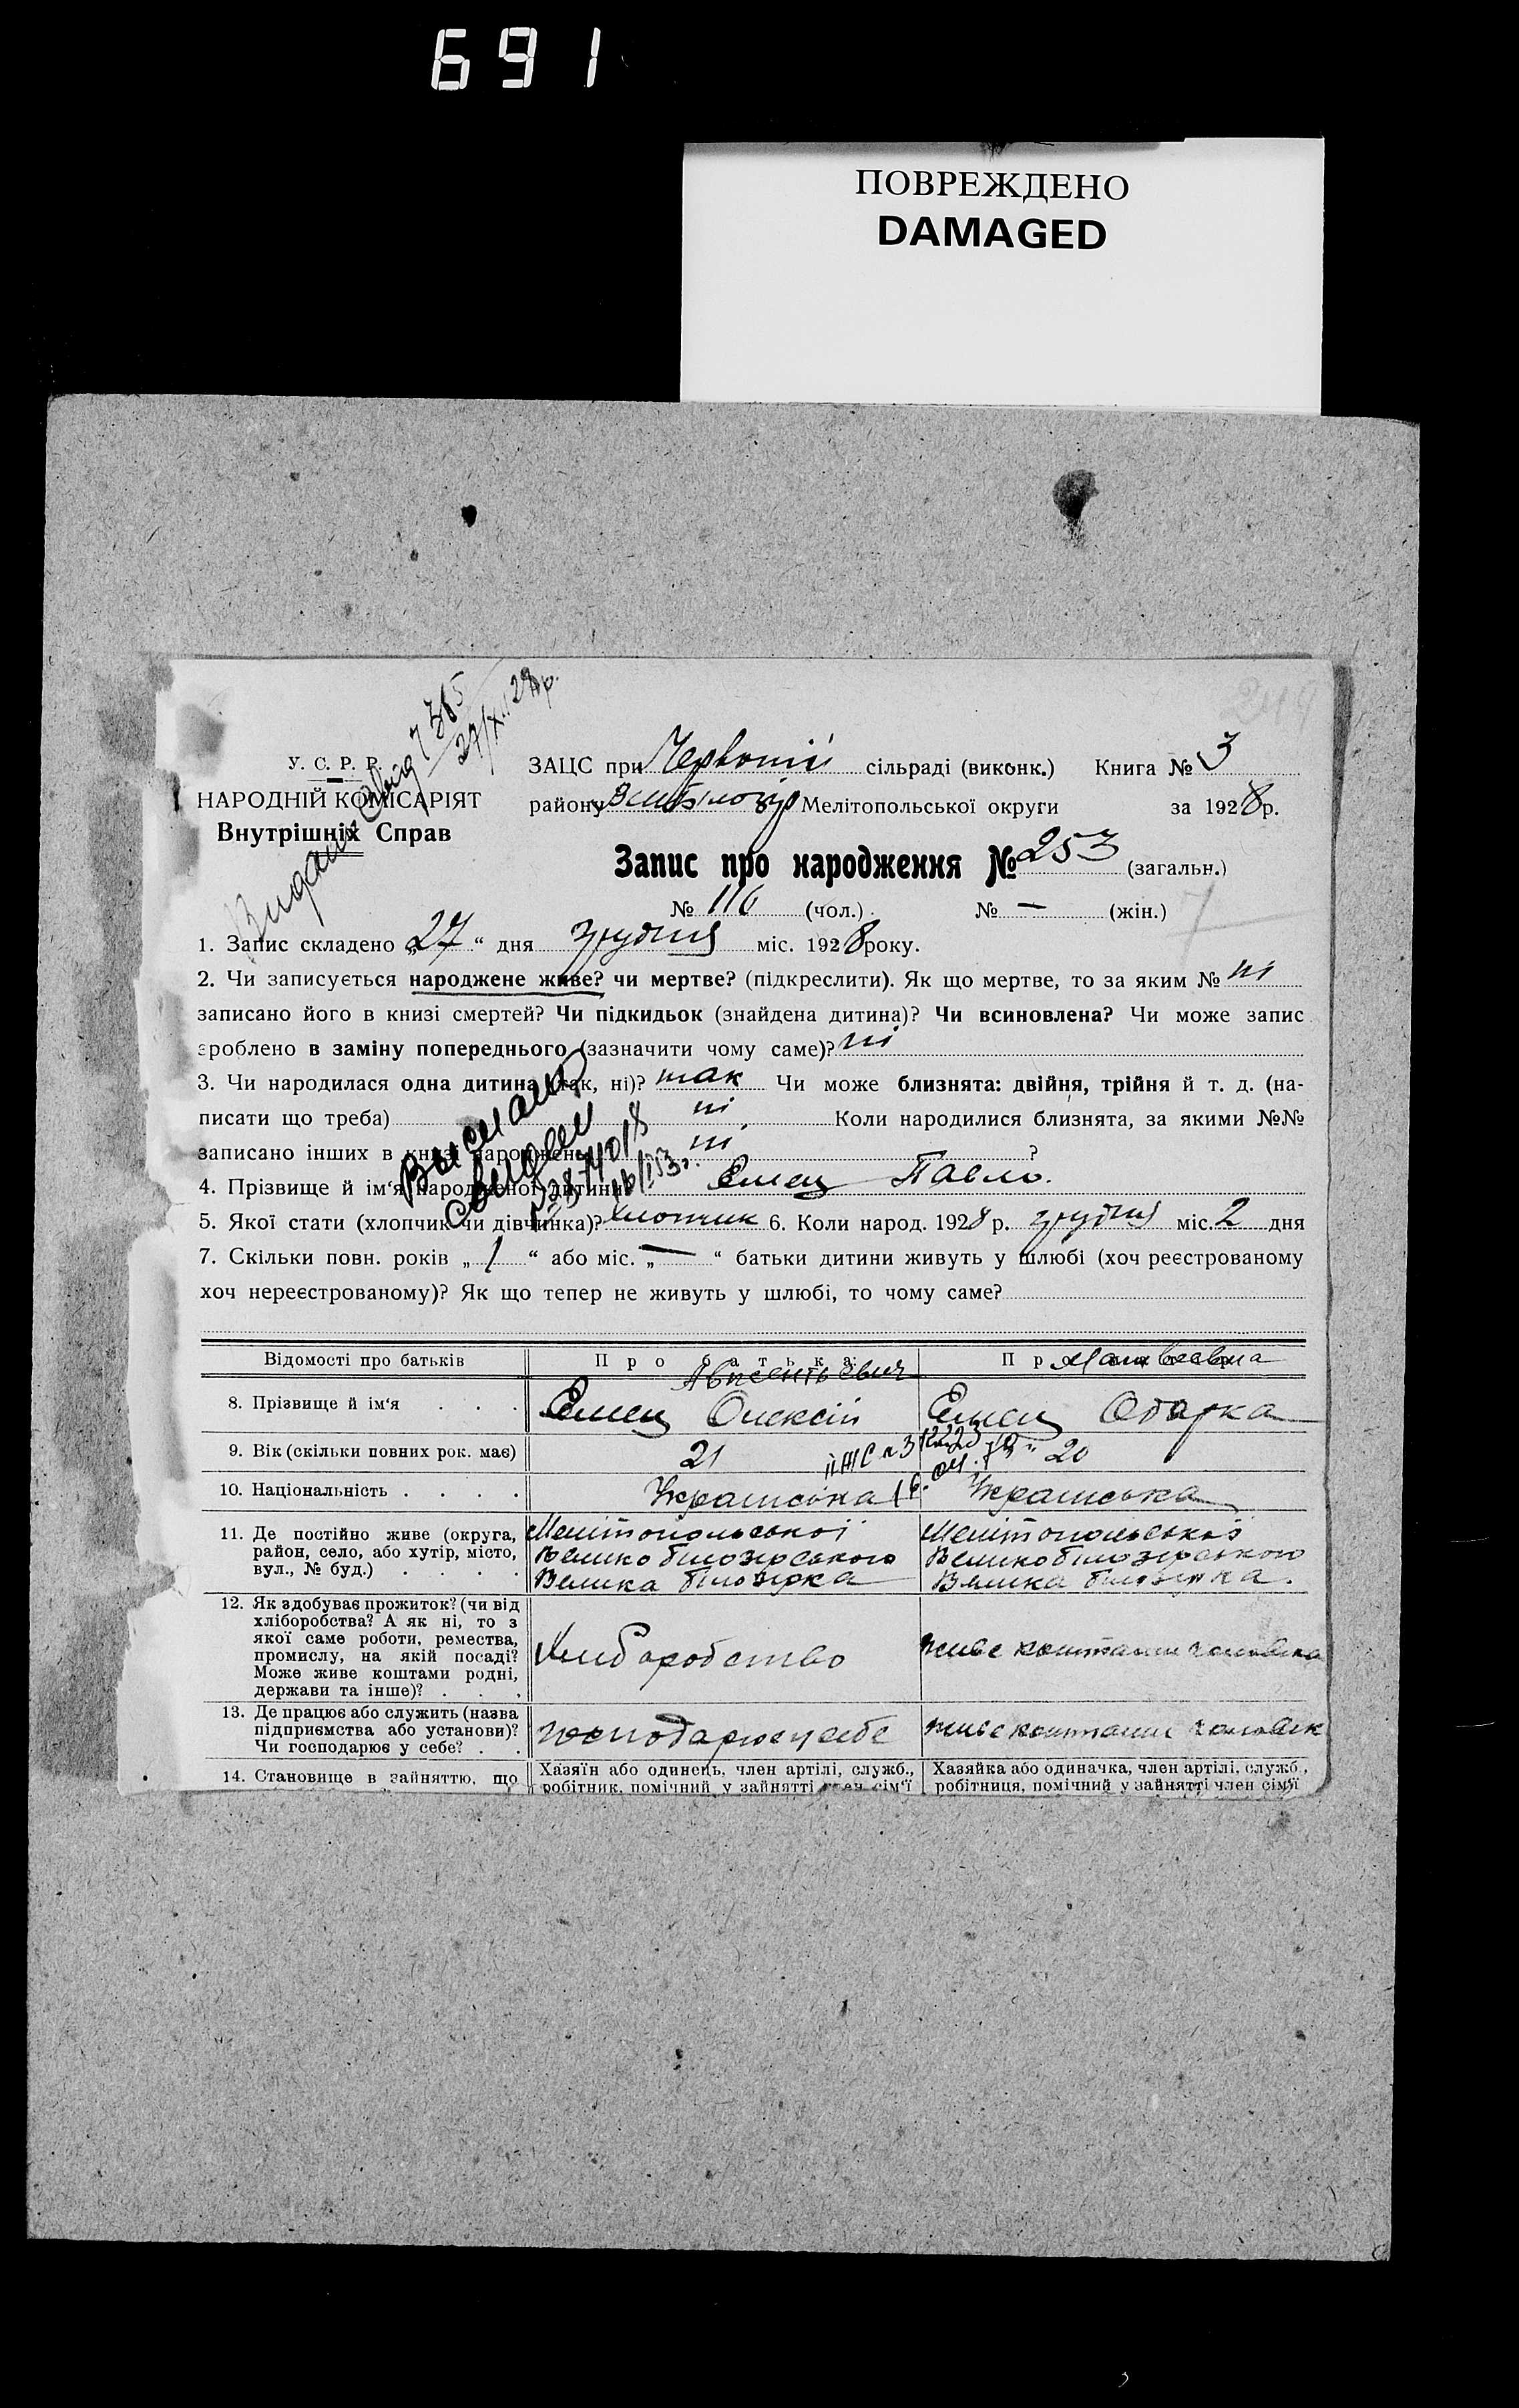 691
ПОВРЕЖДЕНО
DAMAGED
249
385
27/X 29 р.
Видано
У. С. Р. Р.
НАРОДНІЙ КОМІСАРІЯТ
Внутрішніх Справ
ЗАЦС при Червоній сільраді (виконк.) Книга № 3
району Мелітопольської округи за 1928 р.
Запис про народження № 253 (загальн.)
№ 116 (чол.) № — (жін.)
1. Запис складено „27“ дня грудня міс. 1928 року.
2. Чи записується народжене живе? чи мертве? (підкреслити). Як що мертве, то за яким № ні
записано його в книзі смертей? Чи підкидьок (знайдена дитина)? Чи всиновлена? Чи може запис
зроблено в заміну попереднього (зазначити чому саме)? ні
3. Чи народилася одна дитина (так, ні)? так Чи може близнята: двійня, трійня й т. д. (на-
писати що треба) ні Коли народилися близнята, за якими №№
записано інших в книзі народжень ні ?
4. Прізвище й ім‘я народженої дитини Емец Павло.
5. Якої стати (хлопчик чи дівчинка)? хлопчик 6. Коли народ. 1928 р. грудня міс. 2 дня
7. Скільки повн. років „1“ або міс. „—“ батьки дитини живуть у шлюбі (хоч реєстрованому
хоч нереєстрованому)? Як що тепер не живуть у шлюбі, то чому саме?
Відомості про батьків Про батька: Матвеевна
Авксентьевич
8. Прізвище й ім‘я . . . Емец Олексій Емец Одарка
9. Вік (скільки повних рок. має) 21 20
10. Національність . . . . Українська Українська
11. Де постійно живе (округа, Мелітопольської Мелітопольської
район, село, або хутір, місто, Великобілозірського Великобілозірського
вул., № буд.) . . . . Велика білозірка Велика білозірка.
12. Як здобуває прожиток? (чи від
хліборобства? А як ні, то з
якої саме роботи, ремества,
промислу, на якій посаді? Хліборобство живе коштами чоловіка
Може живе коштами родні,
держави та інше)? . . .
13. Де працює або служить (назва
підприємства або установи)? господарює у себе живе коштами чоловік
Чи господарює у себе? . .
14. Становище в зайняттю, що Хазяїн або одинець, член артілі, служб., Хазяйка або одиначка, член артілі, служб.,
робітник, помічний у зайнятті член сім‘ї робітниця, помічний у зайнятті член сім‘ї